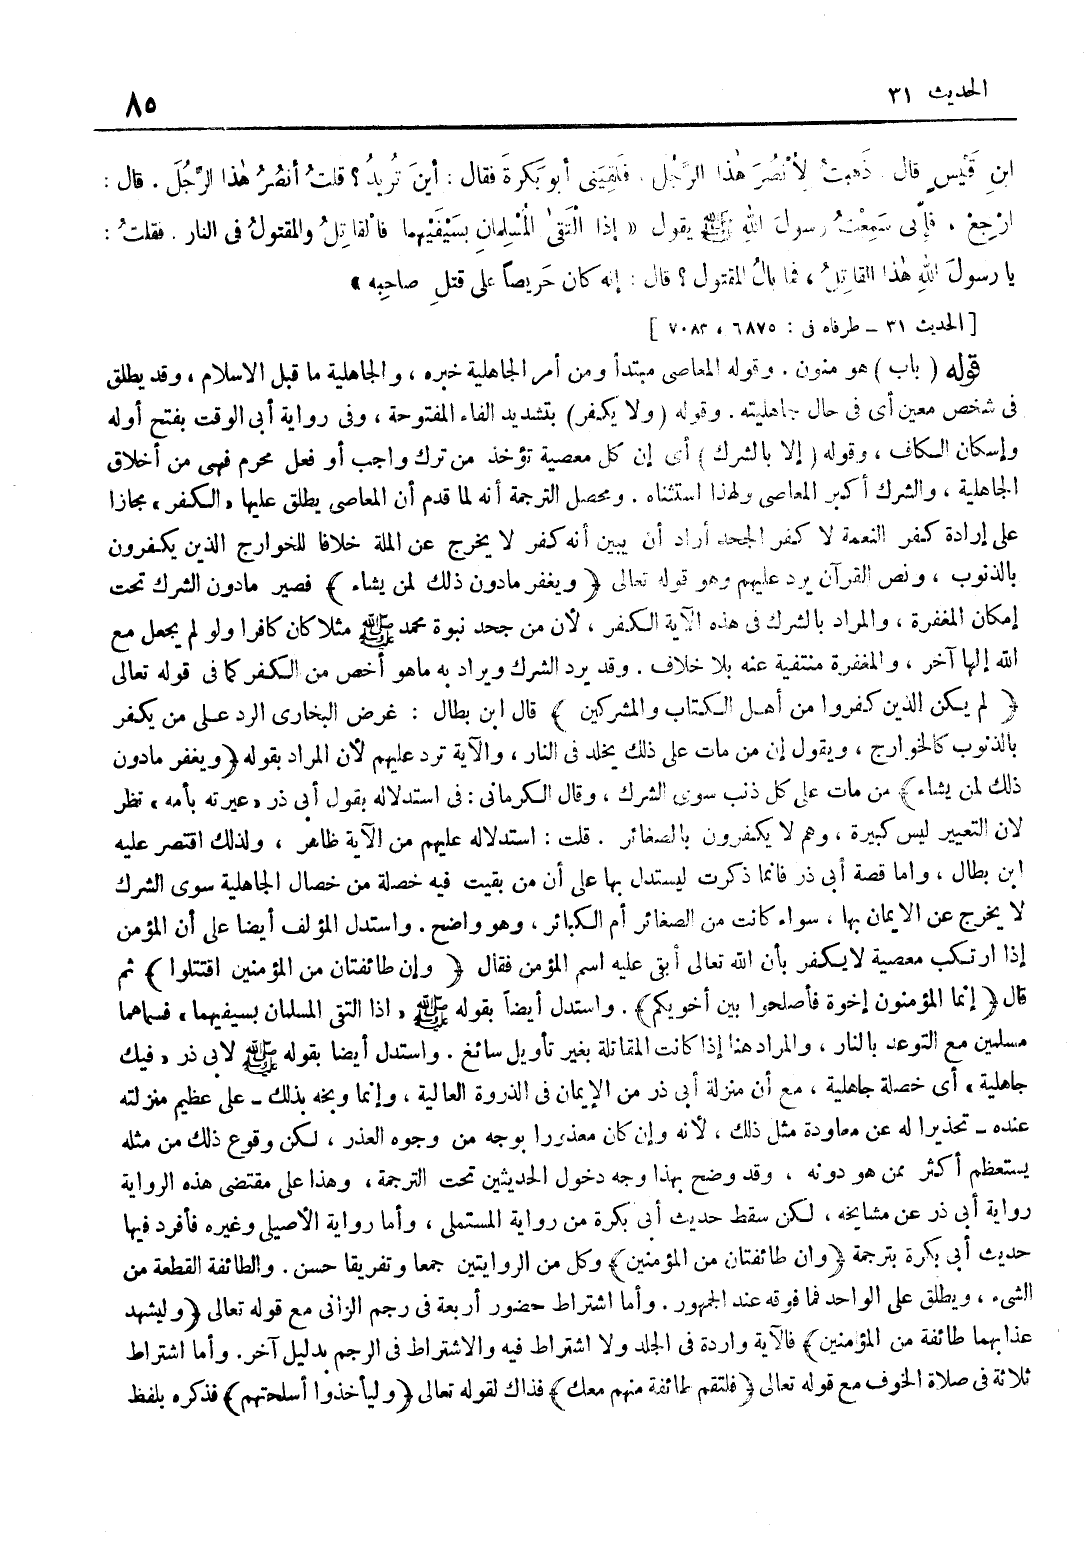 الحديث ٣١
٨٥
ابنِ قَيْسٍ قال . ذَهبتُ لِأَنْصُرَ هٰذا الرَّجُل . فَلَقِيَنى أبو بَكرةَ فقال : أينَ تُريدُ ؟ قلتُ أنصُرُ هٰذا الرَّجُلَ . قال :
ارْجِعْ ، فإنِّى سَمِعْتُ رسولَ اللهِ ﷺ يقول « إذا الْتَقىٰ الْمُسْلِمانِ بسَيْفَيْهِما فالقاتِلُ والمقتولُ فى النار . فقلتُ :
يا رسولَ اللهِ هٰذا القاتِلُ ، فما بالُ المقتول ؟ قال : إنه كان حَريصاً على قتلِ صاحِبِه »
[ الحديث ٣١ ــ طرفاه فى : ٦٨٧٥ ، ٧٠٨٣ ]
قوله ( باب ) هو منون . وقوله المعاصى مبتدأ ومن أمر الجاهلية خبره ، والجاهلية ما قبل الاسلام ، وقد يطلق
فى شخص معين أى فى حال جاهليته . وقوله ( ولا يكفر ) بتشديد الفاء المفتوحة ، وفى رواية أبى الوقت بفتح أوله
وإسكان الكاف ، وقوله ( إلا بالشرك ) أى إن كل معصية تؤخذ من ترك واجب أو فعل محرم فهى من أخلاق
الجاهلية ، والشرك أكبر المعاصى ولهذا استثناه . ومحصل الترجمة أنه لما قدم أن المعاصى يطلق عليها « الكفر » مجازا
على إرادة كفر النعمة لا كفر الجحد أراد أن يبين أنه كفر لا يخرج عن الملة خلافا للخوارج الذين يكفرون
بالذنوب ، ونص القرآن يرد عليهم وهو قوله تعالى ﴿ ويغفر مادون ذلك لمن يشاء ﴾ فصير مادون الشرك تحت
إمكان المغفرة ، والمراد بالشرك فى هذه الآية الكفر ، لأن من جحد نبوة محمد ﷺ مثلا كان كافرا ولو لم يجعل مع
الله إلها آخر ، والمغفرة منتفية عنه بلا خلاف . وقد يرد الشرك ويراد به ماهو أخص من الكفر كما فى قوله تعالى
﴿ لم يكن الذين كفروا من أهل الكتاب والمشركين ﴾ قال ابن بطال : غرض البخارى الرد على من يكفر
بالذنوب كالخوارج ، ويقول إن من مات على ذلك يخلد فى النار ، والآية ترد عليهم لأن المراد بقوله ﴿ ويغفر مادون
ذلك لمن يشاء ﴾ من مات على كل ذنب سوى الشرك ، وقال الكرمانى : فى استدلاله بقول أبى ذر « عيرته بأمه » نظر
لان التعيير ليس كبيرة ، وهم لا يكفرون بالصغائر . قلت : استدلاله عليهم من الآية ظاهر ، ولذلك اقتصر عليه
ابن بطال ، واما قصة أبى ذر فانما ذكرت ليستدل بها على أن من بقيت فيه خصلة من خصال الجاهلية سوى الشرك
لا يخرج عن الايمان بها ، سواء كانت من الصغائر أم الكبائر ، وهو واضح . واستدل المؤلف أيضا على أن المؤمن
إذا ارتكب معصية لايكفر بأن الله تعالى أبقى عليه اسم المؤمن فقال ﴿ وإن طائفتان من المؤمنين اقتتلوا ﴾ ثم
قال ﴿ إنما المؤمنون إخوة فأصلحوا بين أخويكم ﴾ . واستدل أيضاً بقوله ﷺ « اذا التقى المسلمان بسيفيهما » فسماهما
مسلمين مع التوعد بالنار ، والمراد هنا إذا كانت المقاتلة بغير تأويل سائغ . واستدل أيضا بقوله ﷺ لابى ذر « فيك
جاهلية » أى خصلة جاهلية ، مع أن منزلة أبى ذر من الإيمان فى الذروة العالية ، وإنما وبخه بذلك ــ على عظيم منزلته
عنده ــ تحذيرا له عن معاودة مثل ذلك ، لأنه وإن كان معذورا بوجه من وجوه العذر ، لكن وقوع ذلك من مثله
يستعظم أكثر ممن هو دونه ، وقد وضح بهذا وجه دخول الحديثين تحت الترجمة ، وهذا على مقتضى هذه الرواية
رواية أبى ذر عن مشايخه ، لكن سقط حديث أبى بكرة من رواية المستملى ، وأما رواية الأصيلى وغيره فأفرد فيها
حديث أبى بكرة بترجمة ﴿ وان طائفتان من المؤمنين ﴾ وكل من الروايتين جمعا وتفريقا حسن . والطائفة القطعة من
الشىء ، ويطلق على الواحد فما فوقه عند الجمهور . وأما اشتراط حضور أربعة فى رجم الزانى مع قوله تعالى ﴿ وليشهد
عذابهما طائفة من المؤمنين ﴾ فالآية واردة فى الجلد ولا اشتراط فيه والاشتراط فى الرجم بدليل آخر . وأما اشتراط
ثلاثة فى صلاة الخوف مع قوله تعالى ﴿ فلتقم طائفة منهم معك ﴾ فذاك لقوله تعالى ﴿ وليأخذوا أسلحتهم ﴾ فذكره بلفظ